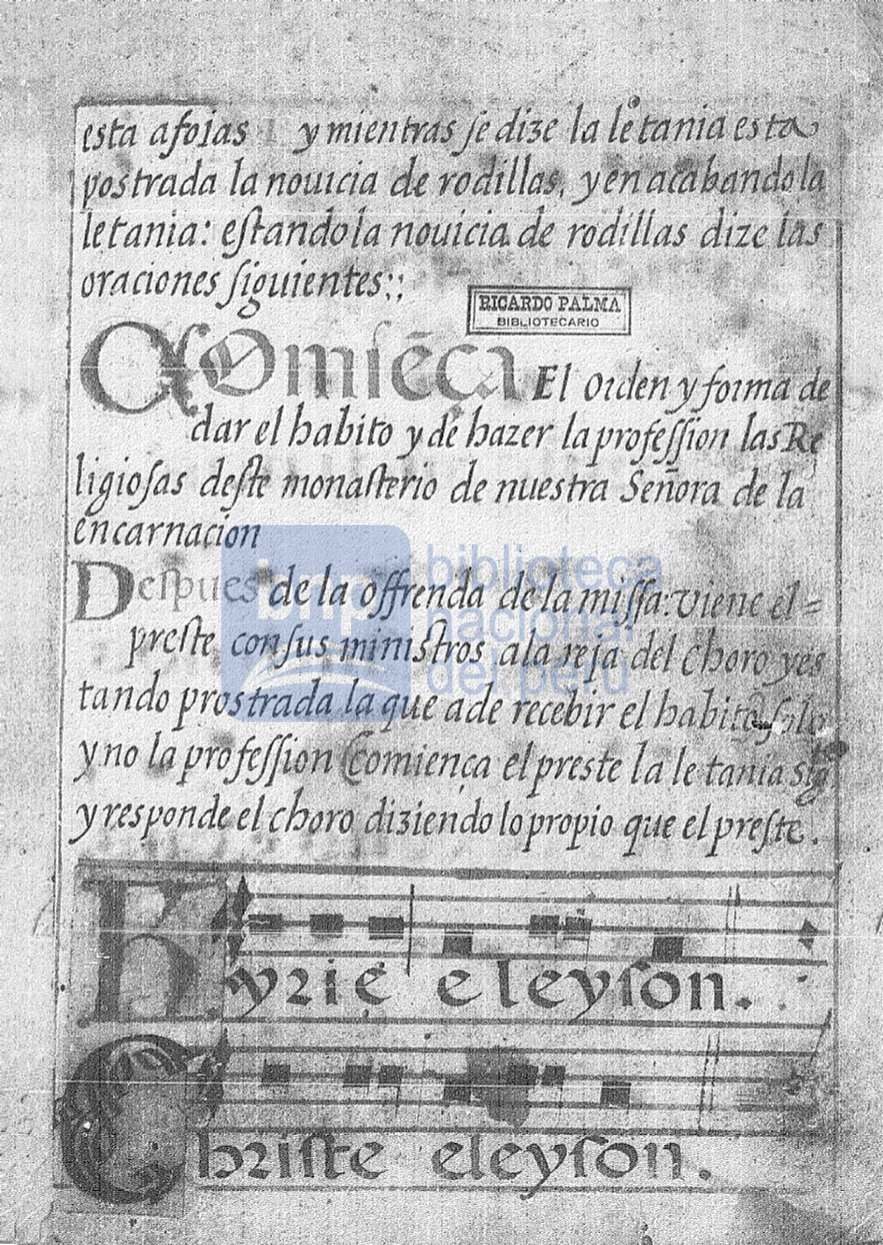 esta afojas 1 y mientras se dize la letania esta
postrada la nouicia de rodillas, y en acabando la
letania: estando la nouicia de rodillas dize las
oraciones siguientes:;
RICARDO PALMA
BIBLIOTECARIO
Comiēça El orden y forma de
dar el habito y de hazer la profession las Re
ligiosas deste monasterio de nuestra Señora de la
encarnacion
Despues de la offrenda de la missa: viene el=
preste con sus ministros ala reja del choro y es
tando prostrada la que ade recebir el habito solo
y no la profession Comiença el preste la letania
y responde el choro diziendo lo propio que el preste.
Kyrie eleyson.
Christe eleyson.
bnp biblioteca
nacional
del perú